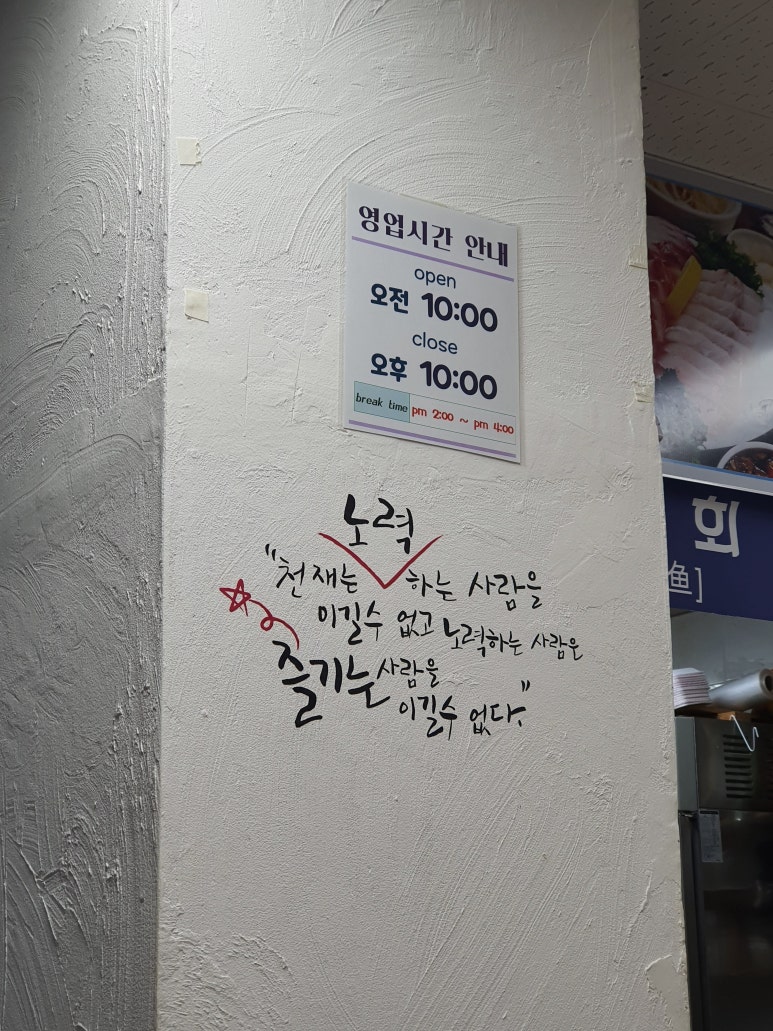 영업시간 안내
open
오전 10:00
close
오후 10:00
break time pm 2:00 ~ pm 4:00
노력
"천재는 하는 사람을
이길수 없고 노력하는 사람은
즐기는 사람을
이길수 없다."
회
鱼]